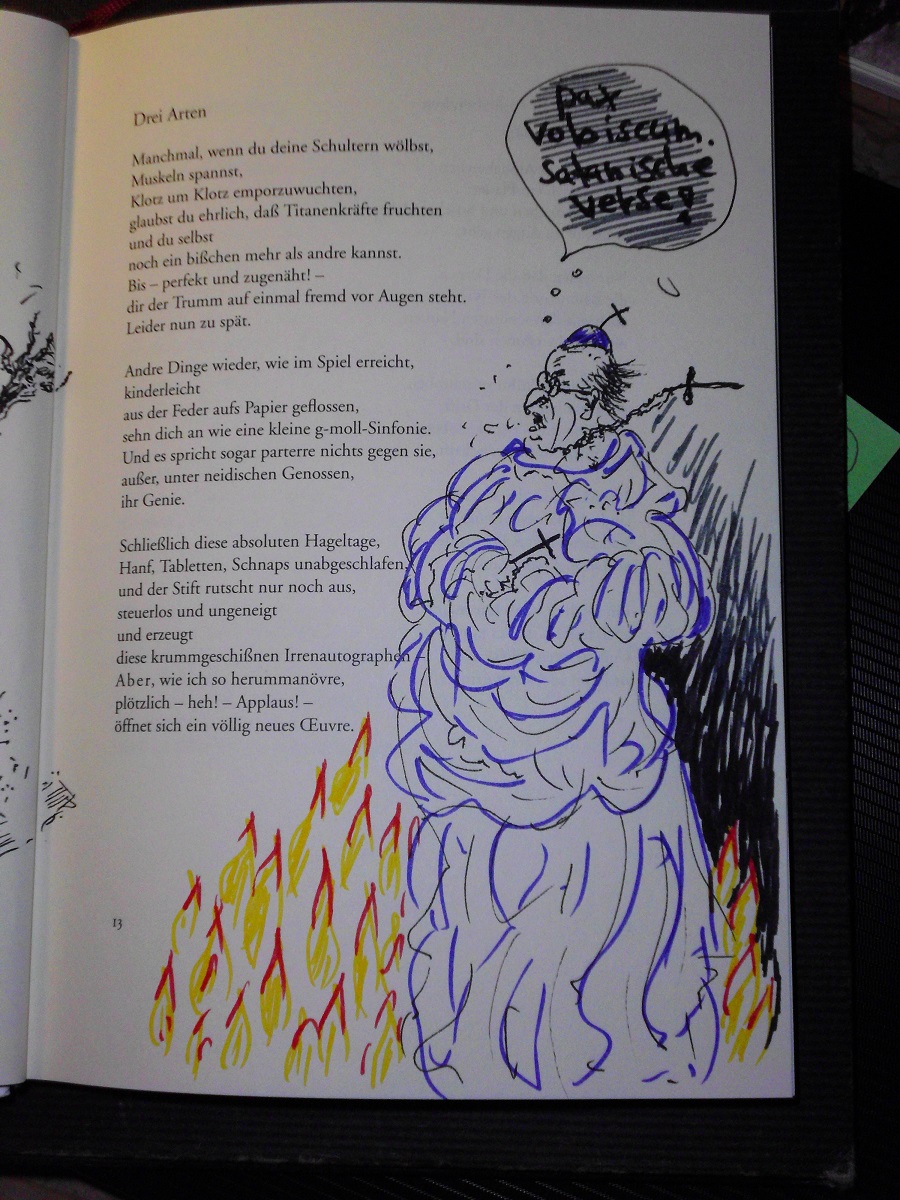 Drei Arten
Manchmal, wenn du deine Schultern wölbst,
Muskeln spannst,
Klotz um Klotz emporzuwuchten,
glaubst du ehrlich, daß Titanenkräfte fruchten
und du selbst
noch ein bißchen mehr als andre kannst.
Bis – perfekt und zugenäht! –
dir der Trumm auf einmal fremd vor Augen steht.
Leider nun zu spät.
Andre Dinge wieder, wie im Spiel erreicht,
kinderleicht
aus der Feder aufs Papier geflossen,
sehn dich an wie eine kleine g-moll-Sinfonie.
Und es spricht sogar parterre nichts gegen sie,
außer, unter neidischen Genossen,
ihr Genie.
Schließlich diese absoluten Hageltage,
Hanf, Tabletten, Schnaps unabgeschlafen,
und der Stift rutscht nur noch aus,
steuerlos und ungeneigt
und erzeugt
diese krummgeschißnen Irrenautographen –
Aber, wie ich so herummanövre,
plötzlich – heh! – Applaus! –
öffnet sich ein völlig neues Œuvre.
13
pax
vobiscum.
satanische
verse!